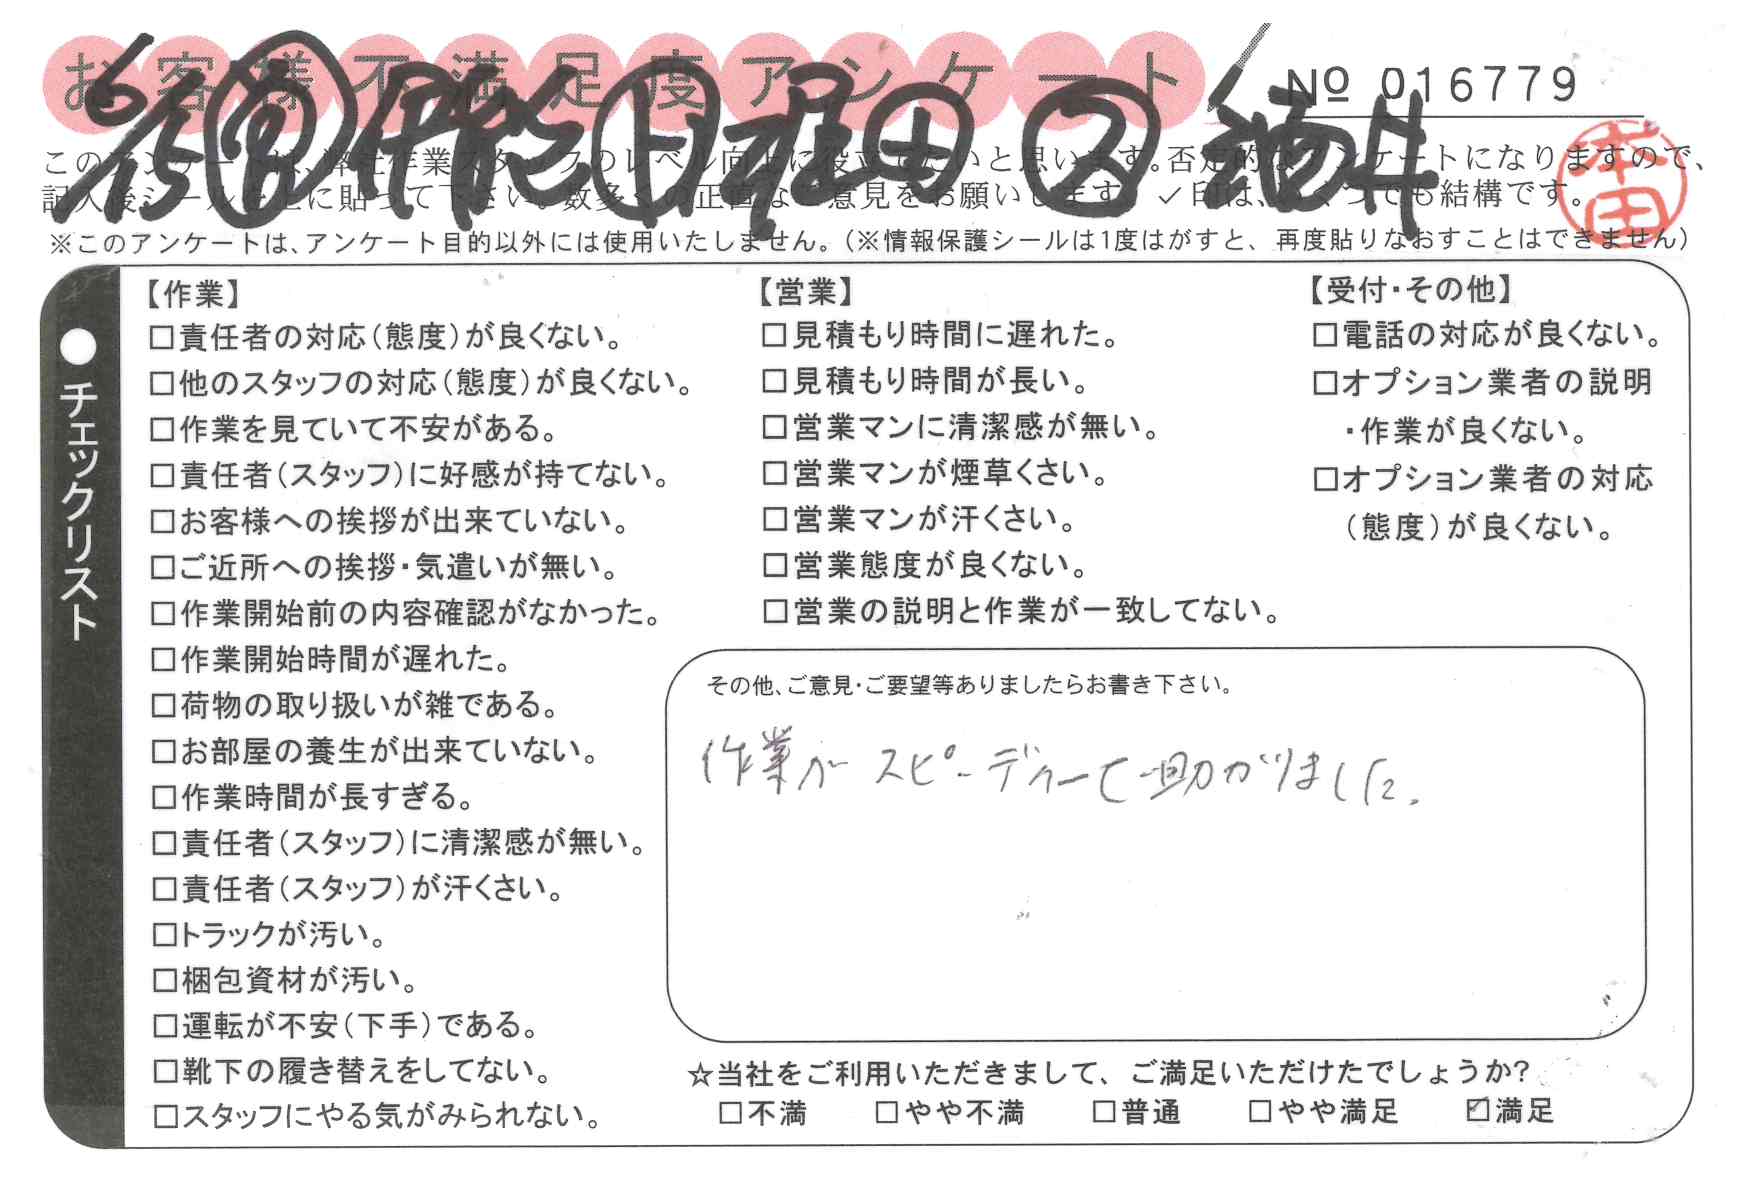 お客様不満足度アンケート
№ 016779
6/15 営 伊能 ト 堀田 ス 酒井
本田
このアンケートは、弊社作業スタッフのレベル向上に役立てたいと思います。否定的なアンケートになりますので、
記入後シールを上に貼って下さい。数多くの正直なご意見をお願いします。✓印は、いくつでも結構です。
※このアンケートは、アンケート目的以外には使用いたしません。(※情報保護シールは1度はがすと、再度貼りなおすことはできません)
●チェックリスト
【作業】
□責任者の対応(態度)が良くない。
□他のスタッフの対応(態度)が良くない。
□作業を見ていて不安がある。
□責任者(スタッフ)に好感が持てない。
□お客様への挨拶が出来ていない。
□ご近所への挨拶・気遣いが無い。
□作業開始前の内容確認がなかった。
□作業開始時間が遅れた。
□荷物の取り扱いが雑である。
□お部屋の養生が出来ていない。
□作業時間が長すぎる。
□責任者(スタッフ)に清潔感が無い。
□責任者(スタッフ)が汗くさい。
□トラックが汚い。
□梱包資材が汚い。
□運転が不安(下手)である。
□靴下の履き替えをしてない。
□スタッフにやる気がみられない。
【営業】
□見積もり時間に遅れた。
□見積もり時間が長い。
□営業マンに清潔感が無い。
□営業マンが煙草くさい。
□営業マンが汗くさい。
□営業態度が良くない。
□営業の説明と作業が一致してない。
【受付・その他】
□電話の対応が良くない。
□オプション業者の説明
・作業が良くない。
□オプション業者の対応
(態度)が良くない。
その他、ご意見・ご要望等ありましたらお書き下さい。
作業がスピーディーで助かりました。
☆当社をご利用いただきまして、ご満足いただけたでしょうか?
□不満 □やや不満 □普通 □やや満足 ☑満足